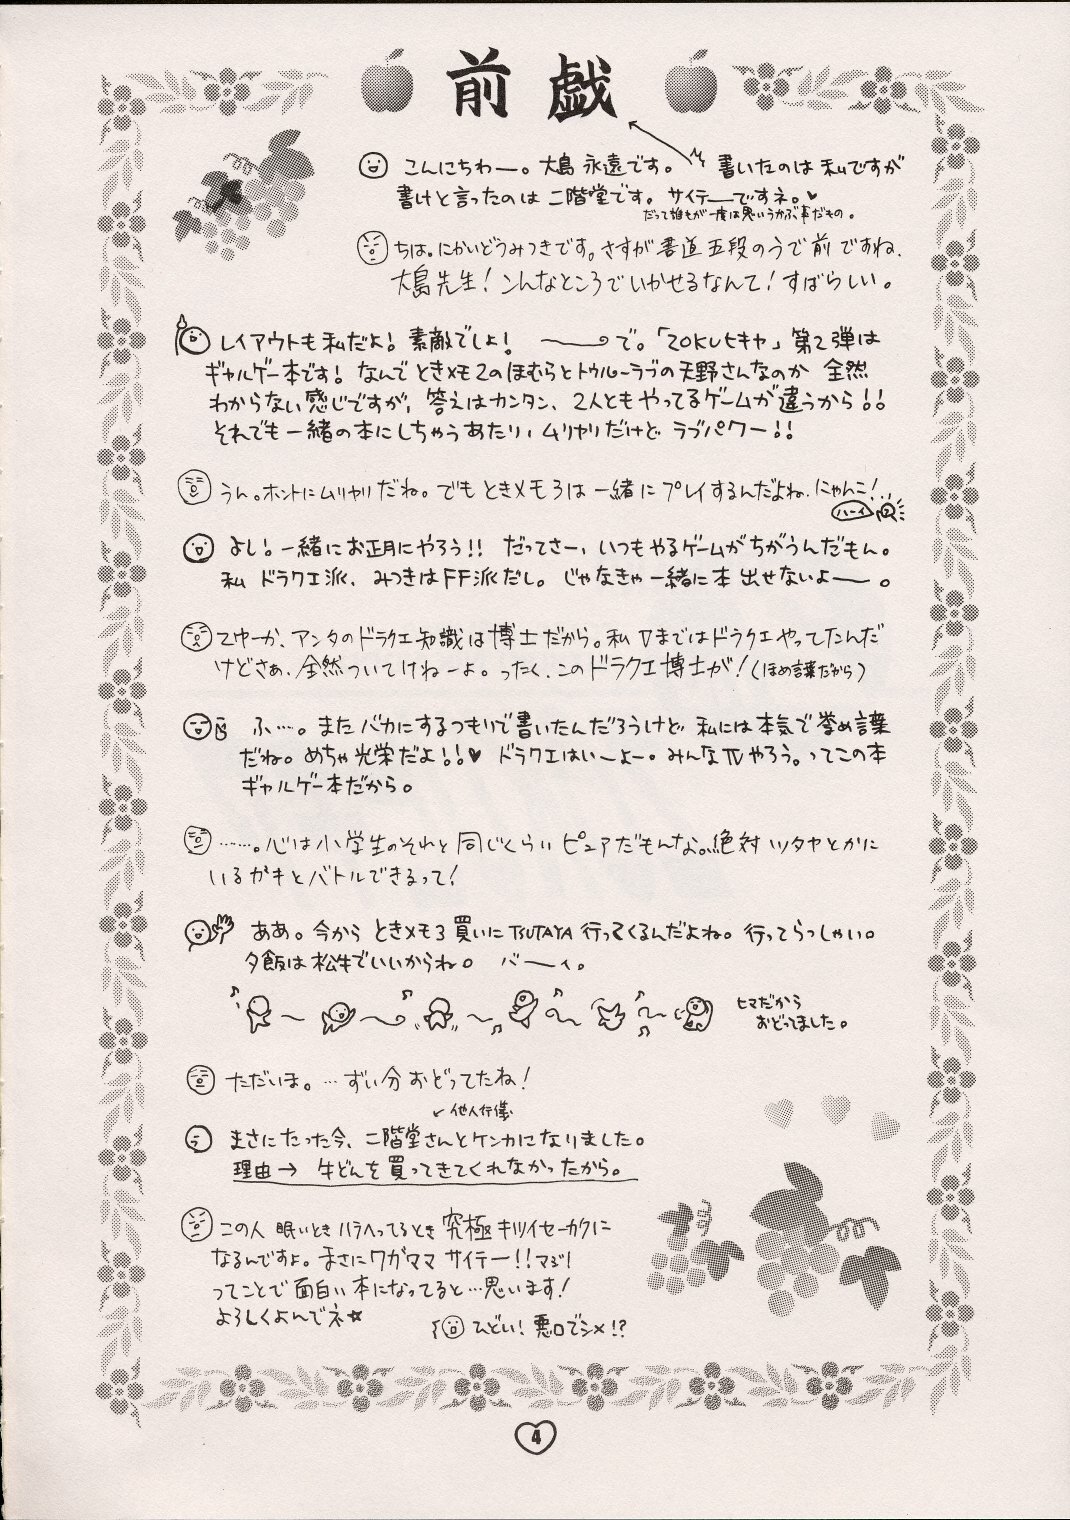 前戯
こんにちわー。大島 永遠です。 書いたのは私ですが
書けと言ったのは 二階堂です。サイテーですネ。♥
だって誰もが一度は思いうかぶ事だもの。
ちは。にかいどうみつきです。さすが書道五段のうで前ですね、
大島先生! こんなところでいかせるなんて! すばらしい。
レイアウトも私だよ! 素敵でしょ! 〜で。「20KUヒキャ」第2弾は
ギャルゲー本です! なんでときメモ2のほむらとトゥルーラブの天野さんなのか 全然
わからない感じですが、答えはカンタン、2人ともやってるゲームが違うから!!
それでも一緒の本にしちゃうあたり、ムリヤリだけど ラブパワー!!
うん。ホントにムリヤリだね。でもときメモ3は一緒にプレイするんだよね、にゃんこ!
ハーイ
よし! 一緒にお正月にやろう!! だってさー、いつもやるゲームがちがうんだもん。
私 ドラクエ派、みつきはFF派だし。じゃなきゃ一緒に本出せないよー。
てゆーか、アンタのドラクエ知識は博士だから。私 Vまではドラクエやってたんだ
けどさぁ、全然ついてけねーよ。ったく、このドラクエ博士が! (ほめ言葉だから)
ふ…。またバカにするつもりで書いたんだろうけど 私には本気で誉め言葉
だね。めちゃ光栄だよ!!♥ ドラクエはいーよー。みんなIVやろう。ってこの本
ギャルゲー本だから。
……。心は小学生のそれと同じくらいピュアだもんな。絶対ツタヤとかに
いるガキとバトルできるって!
ああ。今から ときメモ3 買いにTSUTAYA行ってくるんだよね。行ってらっしゃい。
夕飯は松牛でいいからね。 バーイ。
ヒマだから
おどってました。
ただいま。…ずい分おどってたね!
他人行儀
まさにたった今、二階堂さんとケンカになりました。
理由→ 牛どんを買ってきてくれなかったから。
この人 眠いとき ハラへってるとき 究極キツイセーカクに
なるんですよ。まさにワガママ サイテー!!マジ!
ってことで面白い本になってると…思います!
よろしくよんでネ☆
ひどい! 悪口でシメ!?
4